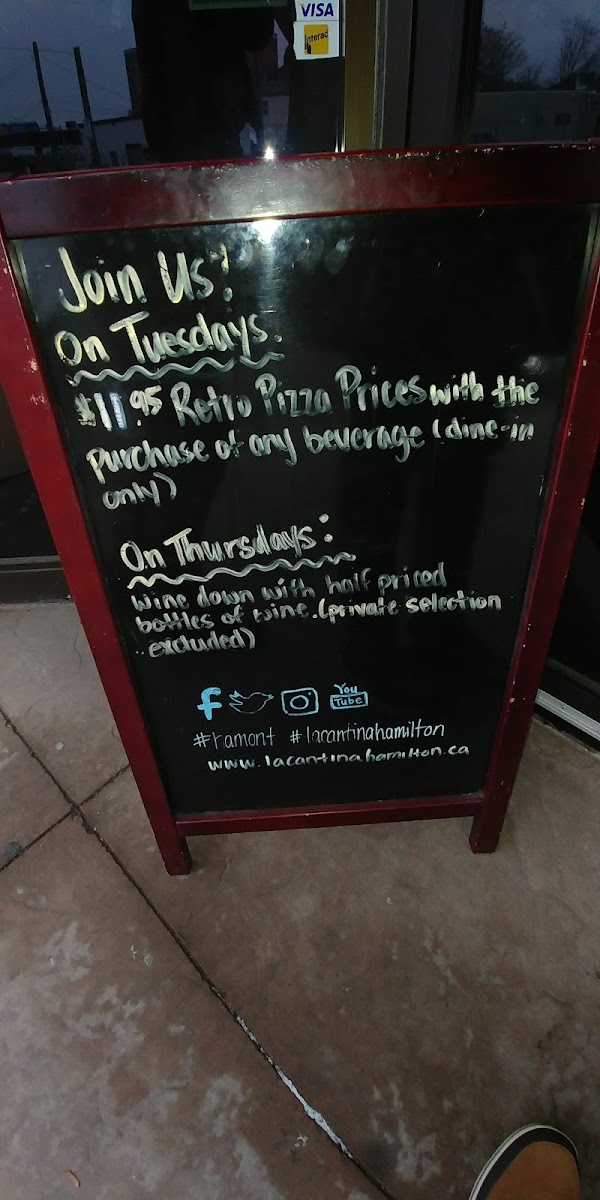 VISA
Interac
Join Us!
On Tuesdays.
$11.95 Retro Pizza Prices with the
purchase of any beverage (dine-in
only)
On Thursdays:
wine down with half priced
bottles of wine. (private selection
excluded)
f
You
Tube
#hamont #lacantinahamilton
www.lacantinahamilton.ca